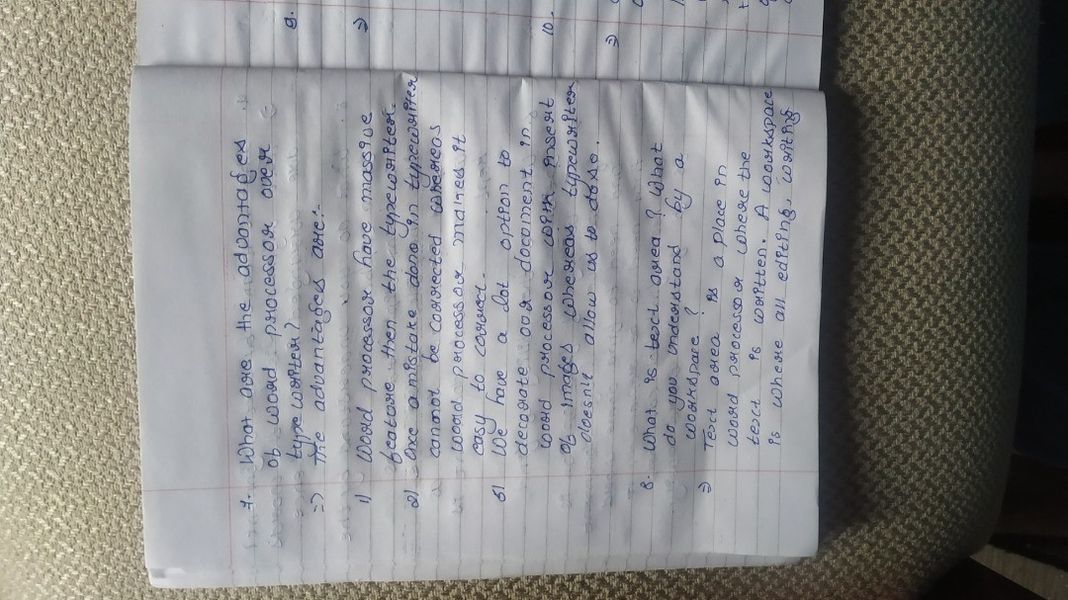 7. What are the advantages
of word processor over
typewriter?
=> The advantages are:-
1) word processor have massive
feature then the typewriter.
2) once a mistake done in typewriter
cannot be corrected whereas
word processor makes it
easy to correct.
3) we have a lot option to
decorate our document in
word processor with insert
of images whereas typewriter
doesn't allow us to do so.
8. What is text area? What
do you understand by a
workspace?
=> Text area is a place in
word processor where the
text is written. A workspace
is where all editing, writing
9.
=>
10.
=>